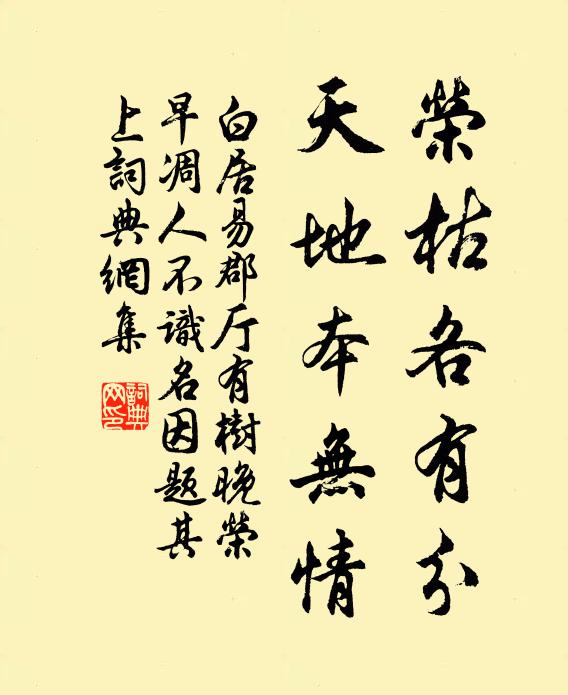 榮枯各有分
天地本無情
白居易郡厅有樹晚榮
早凋人不識名因題其
上詞典網集
詞典
网印